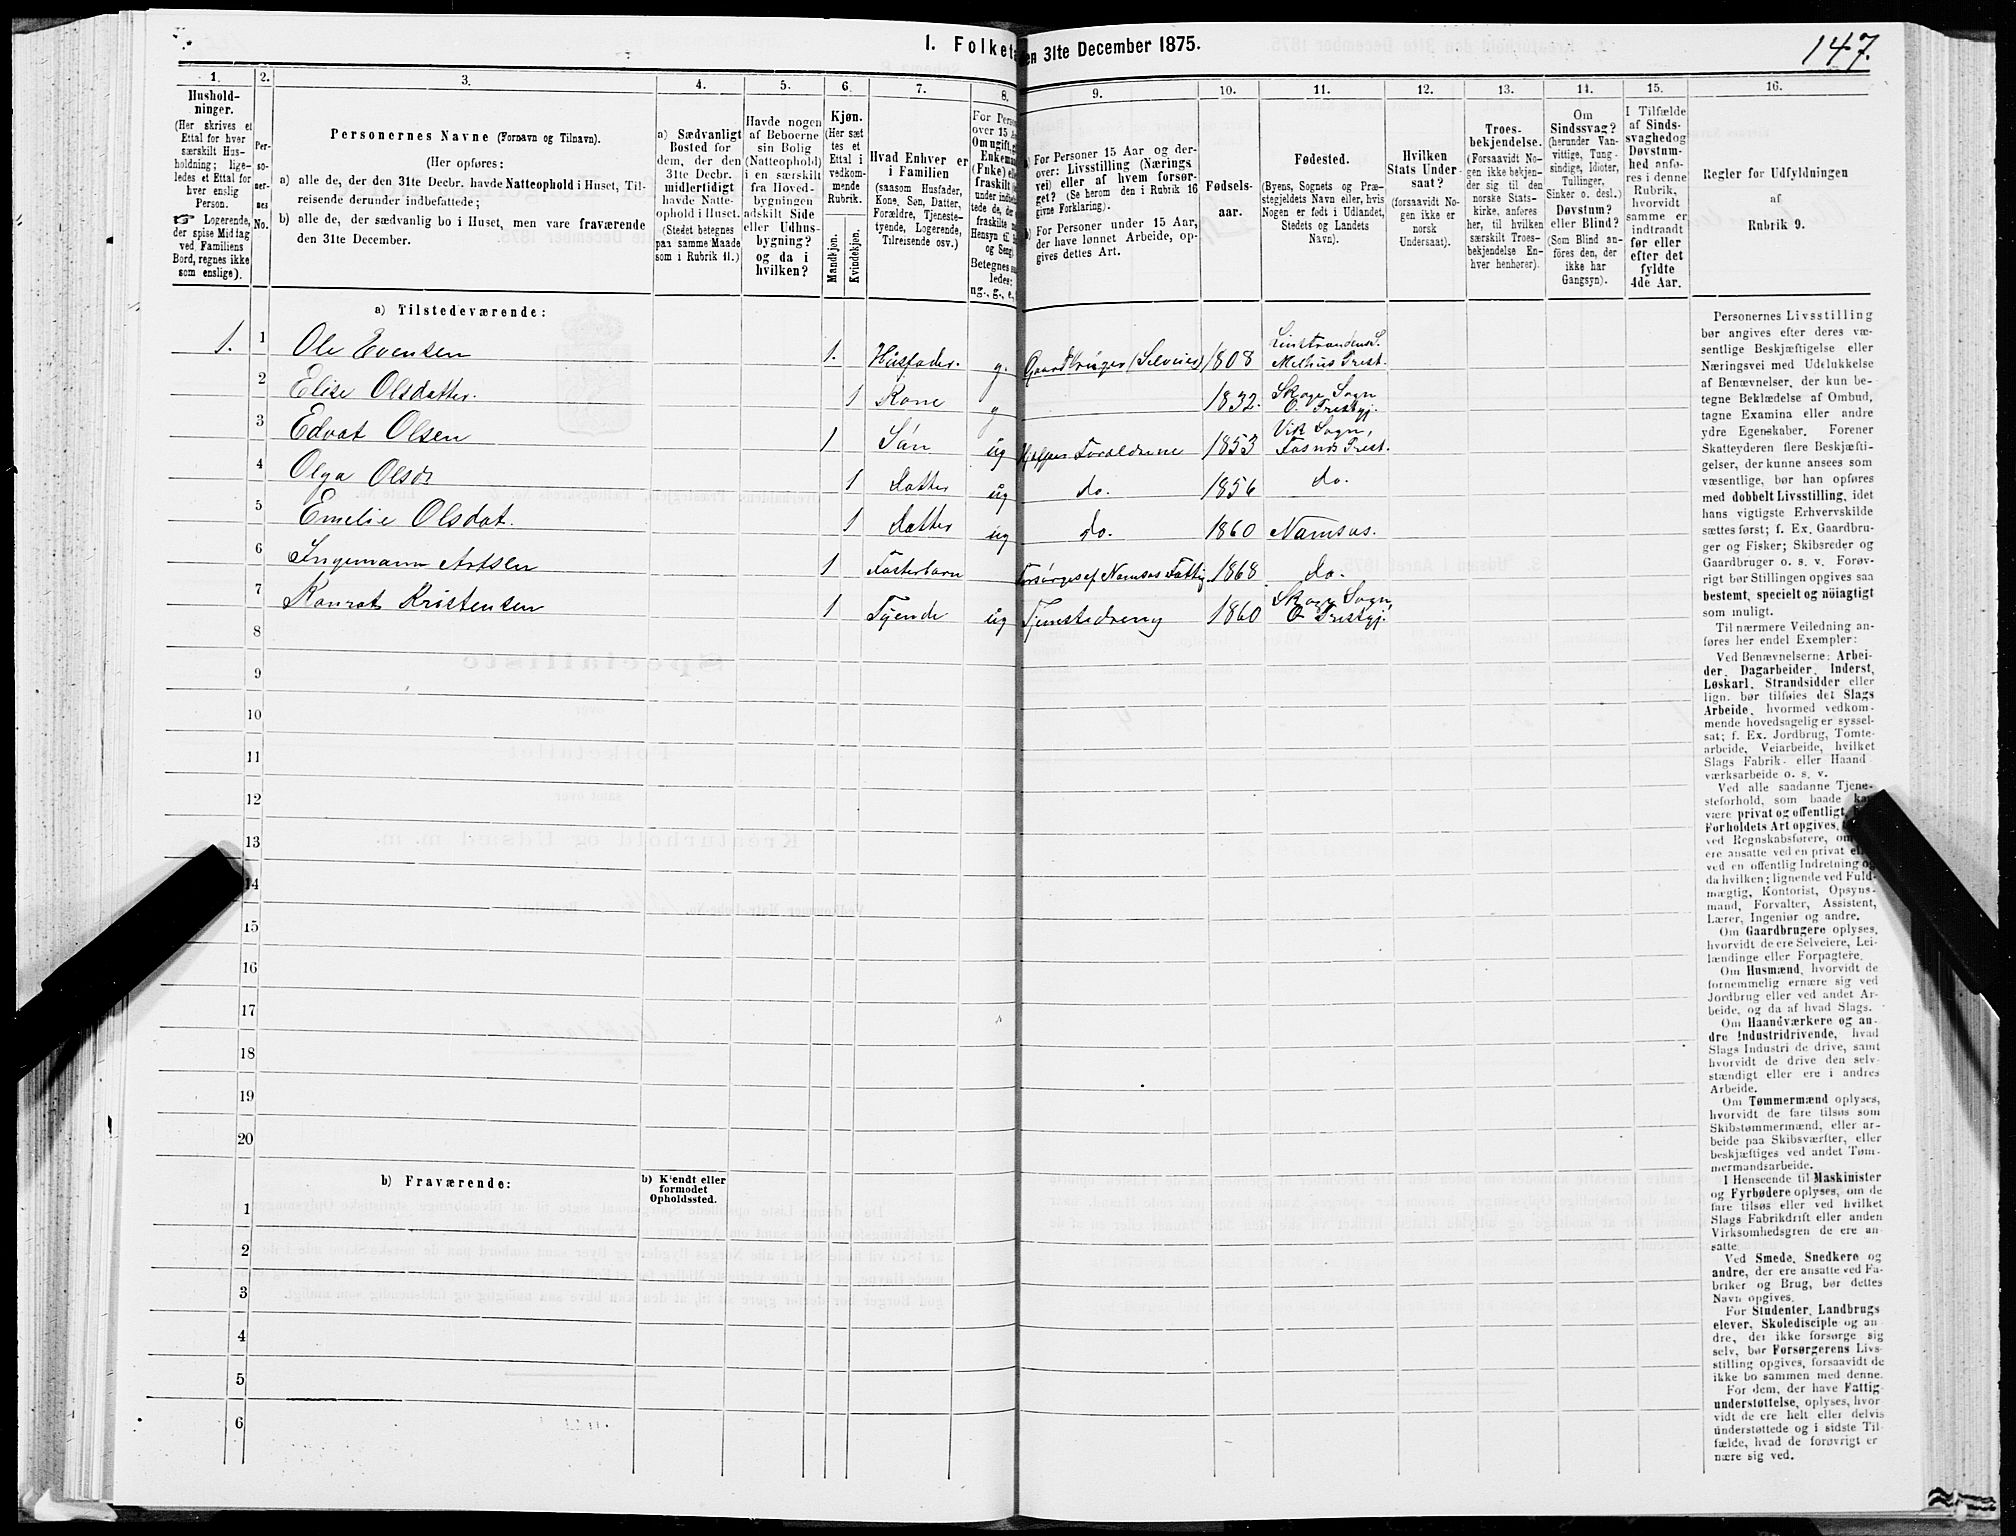 I. Folket
en 31te December 1875.
147.
1.
2.
3.
4.
5.
6.
7.
8.
9.
10.
11.
12.
13.
14.
15.
16.
Hushold-
ninger.
(Her skrives et
Ettal for hver
særskilt Hus-
holdning; lige-
ledes et Ettal for
hver enslig
Person.
☞ Logerende,
der spise Middag
ved Familiens
Bord, regnes ikke
som enslige).
Per-
so-
ner-
nes
No.
Personernes Navne (Fornavn og Tilnavn).
(Her opføres:
a) alle de, der den 31te Decbr. havde Natteophold i Huset, Til-
reisende derunder indbefattede;
b) alle de, der sædvanlig bo i Huset, men vare fraværende
den 31te December.
a) Sædvanligt
Bosted for
dem, der den
31te Decbr.
midlertidigt
havde Natte-
ophold i Huset.
(Stedet betegnes
paa samme Maade
som i Rubrik 11.)
Havde nogen
af Beboerne
sin Bolig
(Natteophold)
i en særskilt
fra Hoved-
bygningen
adskilt Side
eller Udhus-
bygning?
og da i
hvilken?
Kjøn.
(Her sæt
tes et
Ettal i
vedkom-
mende
Rubrik.
Mandkjøn.
Kvindekjøn.
Hvad Enhver er
i Familien
(saasom Husfader,
Kone, Søn, Datter,
Forældre, Tjeneste-
tyende, Logerende,
Tilreisende osv.)
For Perso
over 15 A
Om ugift, g
Enkema
(Enke) el
fraskilt
under indbe
tede de, der
fraskilte m
Hensyn til
og Seng.
Betegnes sa
ledes:
ug., g., e.,
a) For Personer 15 Aar og der-
over: Livsstilling (Nærings
vei) eller af hvem forsør-
get? (Se herom den i Rubrik 16
givne Forklaring).
b) For Personer under 15 Aar,
der have lønnet Arbeide, op-
gives dettes Art.
Fødsels-
aar.
Fødested.
(Byens, Sognets og Præ-
stegjeldets Navn eller, hvis
Nogen er født i Udlandet,
Stedets og Landets
Navn).
Hvilken
Stats Under-
saat?
(forsaavidt No-
gen ikke er
norsk
Undersaat).
Troes-
bekjendelse.
(Forsaavidt No-
gen ikke bekjen-
der sig til den
norske Stats-
kirke, anføres
her, til hvilken
særskilt Troes-
bekjendelse En-
hver henhører).
Om
Sindssvag?
(herunder Van-
vittige, Tung-
sindige, Idioter,
Tullinger,
Sinker o. desl.)
Døvstum?
eller Blind?
(Som Blind an-
føres den, der
ikke har
Gangsyn).
I Tilfælde
af Sinds-
svaghed og
Døvstum-
hed anfø-
res i denne
Rubrik,
hvorvidt
samme er
indtraadt
før eller
efter det
fyldte
4de Aar.
Regler for Udfyldningen
af
Rubrik 9.
a) Tilstedeværende:
1. 1 Ole Evensen 1. Husfader. g. Gaardbruger (Selveier) 1808 Leinstrandens S. Melhus Prest.
2 Elise Olsdatter. 1 Kone g 1832. Skage Sogn O. Prestgj.
3 Edvat Olsen 1 Sön ug Hjelper Foreldrene 1853 Vik Sogn, Fosnes Prest.
4 Olga Olsdr 1 datter ug do. 1856 do.
5 Emelie Olsdat. 1 datter ug do. 1860 Namsos.
6 Ingemann Antsen 1 Fosterbarn Forsørges af Namsos Fattig 1868 do.
7 Konrat Kristensen 1 Tyende ug Tjenestedreng 1860 Skage Sogn, O Prestgj.
8
9
10
11
12
13
14
15
16
17
18
19
20
b) Fraværende:
b) Kjendt eller
formodet
Opholdssted.
1
2
3
4
5
6
Personernes Livsstilling
bør angives efter deres væ-
sentlige Beskjæftigelse eller
Næringsvei med Udelukkelse
af Benævnelser, der kun be-
tegne Beklædelse af Ombud,
tagne Examina eller andre
ydre Egenskaber. Forener
Skatteyderen flere Beskjæfti-
gelser, der kunne ansees som
væsentlige, bør han opføres
med dobbelt Livsstilling, idet
hans vigtigste Erhvervskilde
sættes først; f. Ex. Gaardbru-
ger og Fisker; Skibsreder og
Gaardbruger o. s. v. Forøv-
rigt bør Stillingen opgives saa
bestemt, specielt og nöiagtigt
som muligt.
Til nærmere Veiledning an-
føres her endel Exempler:
Ved Benævnelserne: Arbei-
der, Dagarbeider, Inderst,
Løskarl, Strandsidder eller
lign. bør tilføies det Slags
Arbeide, hvormed vedkom-
mende hovedsagelig er syssel-
sat; f. Ex. Jordbrug, Tomte-
arbeide, Veiarbeide, hvilket
Slags Fabrik- eller Haand
værksarbeide o. s. v.
Ved alle saadanne Tjene-
steforhold, som baade ka
være privat og offentligt,
Forholdets Art opgives,
ved Regnskabsførere, om
ere ansatte ved en privat el
ved en offentlig Indretning og
da hvilken; lignende ved Fuld-
mægtig, Kontorist, Opsyns-
mand, Forvalter, Assistent,
Lærer, Ingeniør og andre.
Om Gaardbrugere oplyses,
hvorvidt de ere Selveiere, Lei-
lændinge eller Forpagtere.
Om Husmænd, hvorvidt de
fornemmelig ernære sig ved
Jordbrug eller ved andet Ar-
beide, og da af hvad Slags.
Om Haandværkere og an-
dre Industridrivende, hvad
Slags Industri de drive, samt
hvorvidt de drive den selv-
stændigt eller ere i andres
Arbeide.
Om Tømmermænd oplyses,
hvorvidt de fare tilsøs som
Skibstømmermænd, eller ar-
beide paa Skibsværfter, eller
beskjæftiges ved andet Tøm-
mermandsarbeide.
I Henseende til Maskinister
og Fyrbødere oplyses, om de
fare tilsøs eller ved hvilket
Slags Fabrikdrift eller anden
Virksomhedsgren de ere an-
satte.
Ved Smede, Snedkere og
andre, der ere ansatte ved Fa-
briker og Brug, bør dettes
Navn opgives.
For Studenter, Landbrugs
elever, Skoledisciple og an-
dre, der ikke forsørge sig
selv, bør Forsørgerens Livs-
stilling opgives, forsaavidt de
ikke bo sammen med denne.
For dem, der have Fattig-
understøttelse, oplyses, hvor-
vidt de ere helt eller delvis
understøttede og i sidste Til-
fælde, hvad de forøvrigt er
nære sig ved.